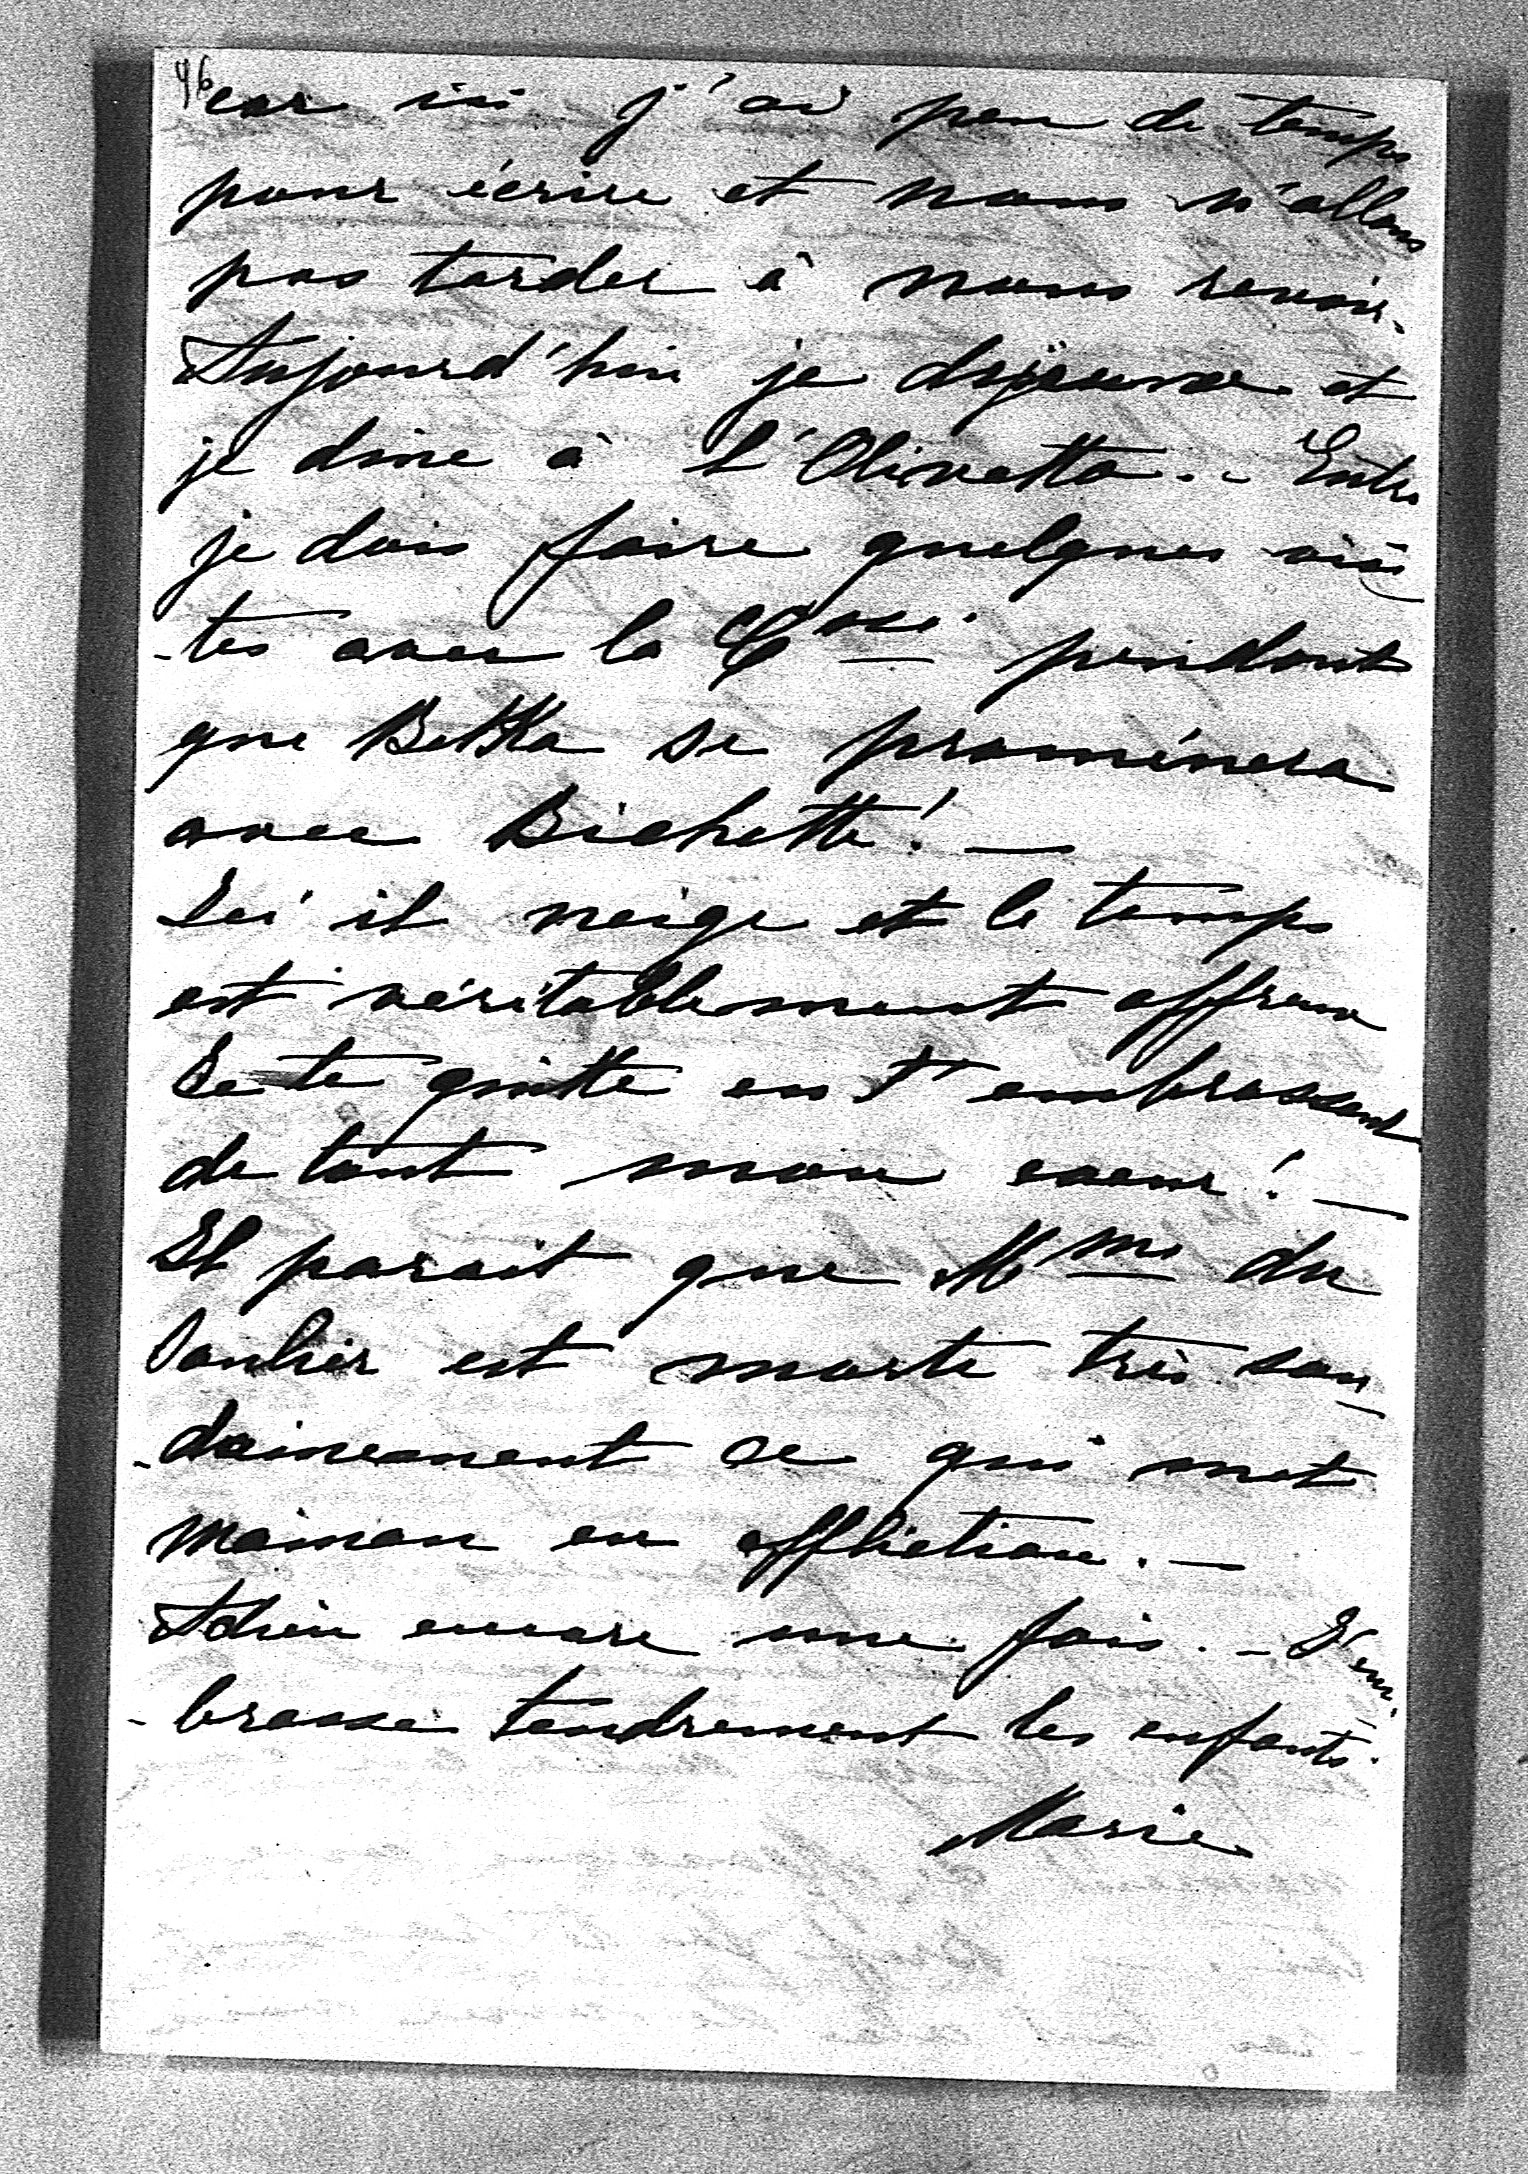 96
car ici j'ai peu de temps
pour écrire et nous n'allons
pas tarder à nous revoir.
Aujourd'hui je déjeune et
je dine à l'Olivetta. - Entre
je dois faire quelques visi
-tes avec la pendant
que Bekka se promènera
avec Bichette! —
Ici il neige et le temps
est véritablement affreux
Je te quitte en t'embrassant
de tout mon coeur! —
Il parait que Mme du
est morte très sou
-dainement ce qui met
maman en affliction. —
Adieu encore une fois. - J'em
-brasse tendrement les enfants.
Marie